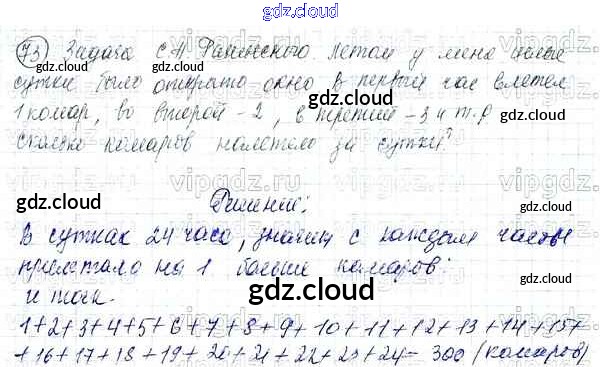 gdz.cloud
73) Задача С.А. Рачинского. Летом у меня целые
сутки было открыто окно. В первый час влетел
1 комар, во второй - 2, в третий - 3 и т.д.
Сколько комаров налетело за сутки?
Решение:
В сутках 24 часа, значит с каждым часом
прилетало на 1 больше комаров.
и так.
1+2+3+4+5+6+7+8+9+10+11+12+13+14+15+
+16+17+18+19+20+21+22+23+24= 300 (комаров)